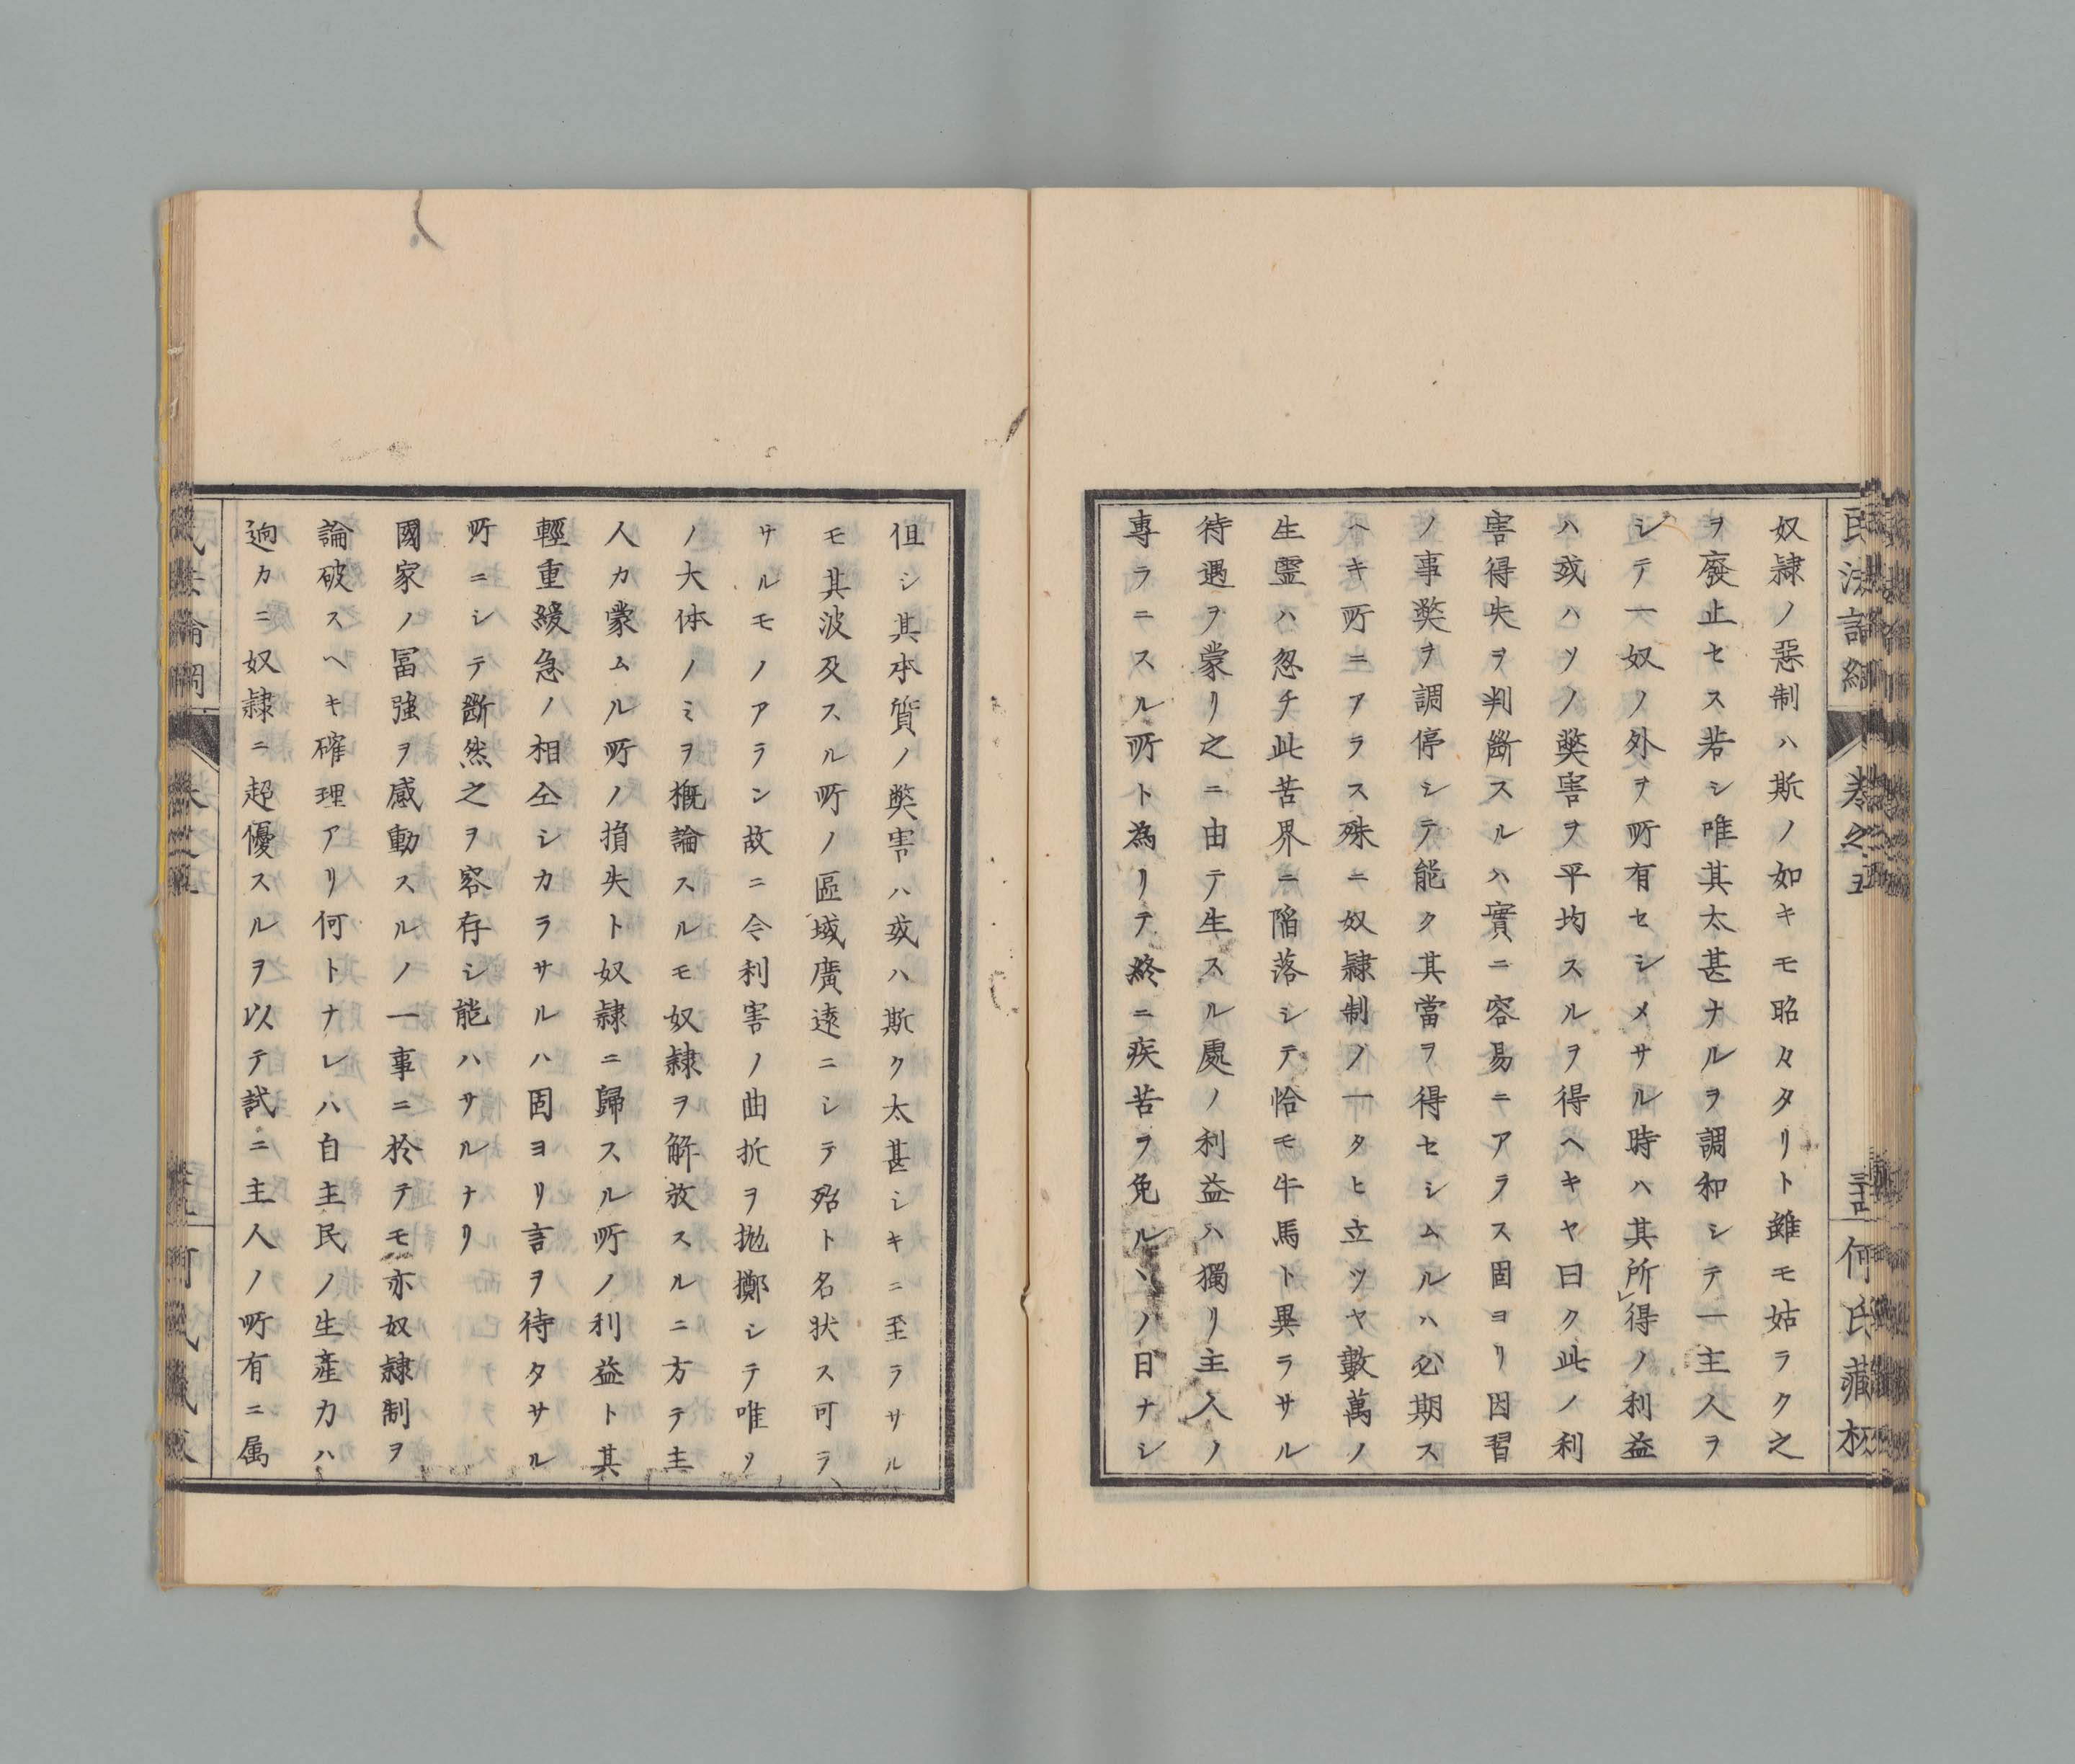 民法論綱 卷之五 何氏藏板
奴隷ノ惡制ハ斯ノ如キモ昭々タリト雖モ姑ラク之
ヲ廢止セス若シ唯其太甚ナルヲ調和シテ一主人ヲ
シテ一奴ノ外ヲ所有セシメサル時ハ其所得ノ利益
ハ或ハソノ獘害ヲ平均スルヲ得ヘキヤ曰ク此ノ利
害得失ヲ判斷スルハ實ニ容易ニアラス固ヨリ因習
ノ事獘ヲ調停シテ能ク其當ヲ得セシムルハ必期ス
ヘキ所ニアラス殊ニ奴隷制ノ一タヒ立ツヤ數萬ノ
生靈ハ忽チ此苦界ニ陷落シテ恰モ牛馬ト異ラサル
待遇ヲ蒙リ之ニ由テ生スル處ノ利益ハ獨リ主人ノ
專ラニスル所ト為リテ終ニ疾苦ヲ免ルヽノ日ナシ
但シ其本質ノ獘害ハ或ハ斯ク太甚シキニ至ラサル
モ其波及スル所ノ區域廣遠ニシテ殆ト名状ス可ラ
サルモノアラン故ニ今利害ノ曲折ヲ抛擲シテ唯ソ
ノ大体ノミヲ概論スルモ奴隷ヲ解放スルニ方テ主
人カ蒙ムル所ノ損失ト奴隷ニ歸スル所ノ利益ト其
輕重緩急ノ相仝シカラサルハ固ヨリ言ヲ待タサル
所ニシテ斷然之ヲ容存シ能ハサルナリ
國家ノ冨強ヲ感動スルノ一事ニ於テモ亦奴隷制ヲ
論破スヘキ確理アリ何トナレハ自主民ノ生產力ハ
逈カニ奴隷ニ超優スルヲ以テ試ニ主人ノ所有ニ属